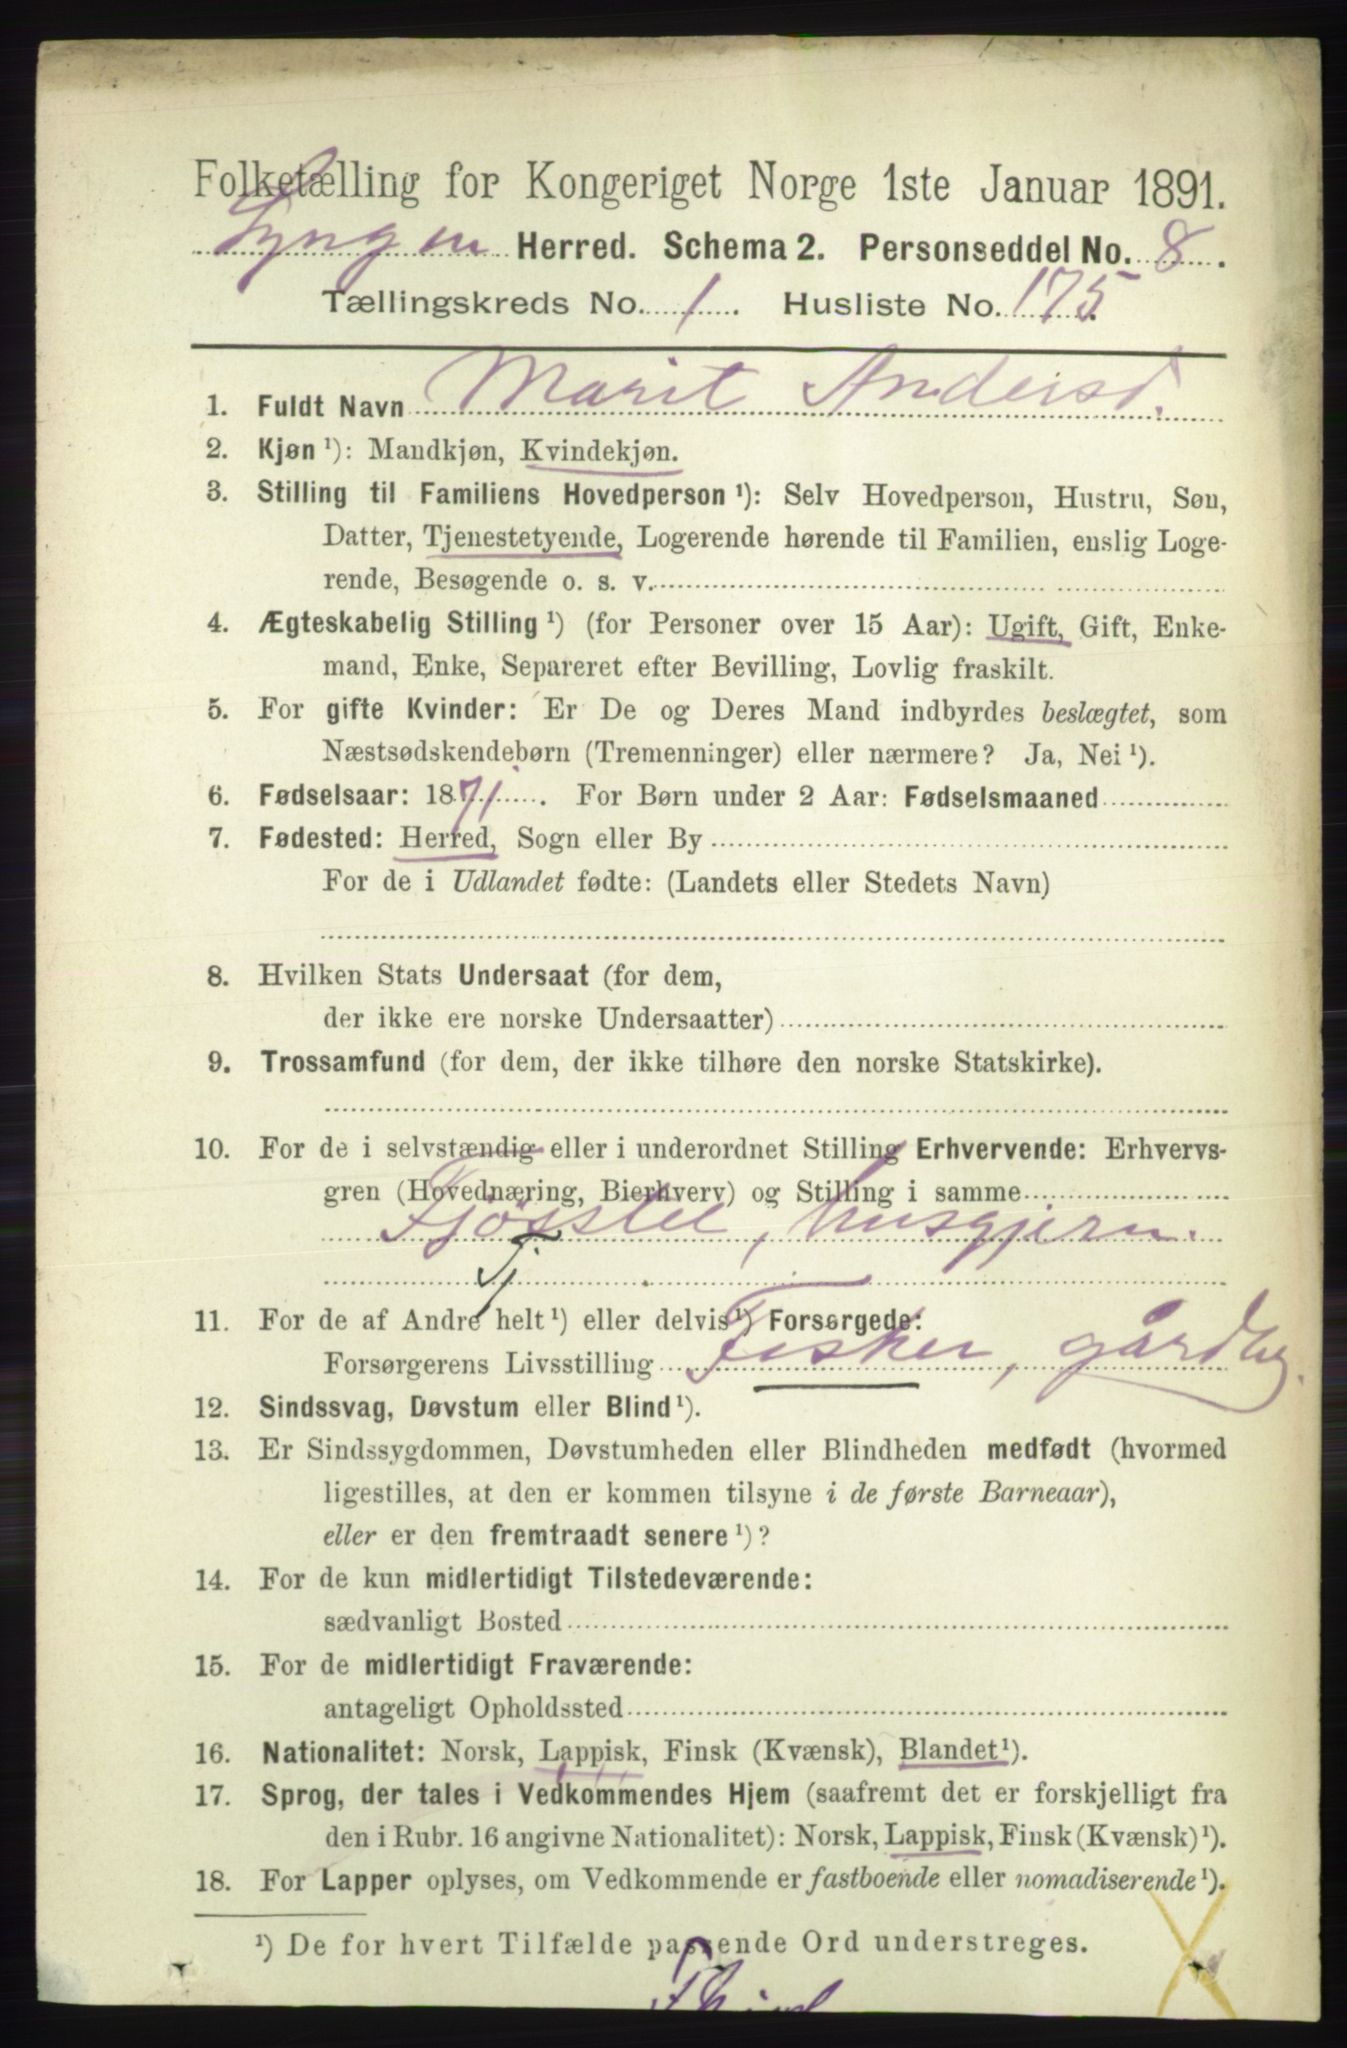 Folketælling for Kongeriget Norge 1ste Januar 1891.
Lyngen Herred. Schema 2. Personseddel No. 8.
Tællingskreds No. 1. Husliste No. 175.
1. Fuldt Navn Marit Andersd.
2. Kjøn ¹): Mandkjøn, Kvindekjøn.
3. Stilling til Familiens Hovedperson ¹): Selv Hovedperson, Hustru, Søn,
Datter, Tjenestetyende, Logerende hørende til Familien, enslig Loge-
rende, Besøgende o. s. v.
4. Ægteskabelig Stilling ¹) (for Personer over 15 Aar): Ugift, Gift, Enke-
mand, Enke, Separeret efter Bevilling, Lovlig fraskilt.
5. For gifte Kvinder: Er De og Deres Mand indbyrdes beslægtet, som
Næstsødskendebørn (Tremenninger) eller nærmere? Ja, Nei ¹).
6. Fødselsaar: 1871. For Børn under 2 Aar: Fødselsmaaned
7. Fødested: Herred, Sogn eller By
For de i Udlandet fødte: (Landets eller Stedets Navn)
8. Hvilken Stats Undersaat (for dem,
der ikke ere norske Undersaatter)
9. Trossamfund (for dem, der ikke tilhøre den norske Statskirke).
10. For de i selvstændig eller i underordnet Stilling Erhvervende: Erhvervs-
gren (Hovednæring, Bierhverv) og Stilling i samme
Fjösstel, husgjern.
Tj
11. For de af Andre helt ¹) eller delvis ¹) Forsørgede:
Forsørgerens Livsstilling Fisker, gårdbr.
12. Sindssvag, Døvstum eller Blind ¹).
13. Er Sindssygdommen, Døvstumheden eller Blindheden medfødt (hvormed
ligestilles, at den er kommen tilsyne i de første Barneaar),
eller er den fremtraadt senere ¹)?
14. For de kun midlertidigt Tilstedeværende:
sædvanligt Bosted
15. For de midlertidigt Fraværende:
antageligt Opholdssted
16. Nationalitet: Norsk, Lappisk, Finsk (Kvænsk), Blandet ¹).
17. Sprog, der tales i Vedkommendes Hjem (saafremt det er forskjelligt fra
den i Rubr. 16 angivne Nationalitet): Norsk, Lappisk, Finsk (Kvænsk) ¹).
18. For Lapper oplyses, om Vedkommende er fastboende eller nomadiserende ¹).
¹) De for hvert Tilfælde passende Ord understreges.